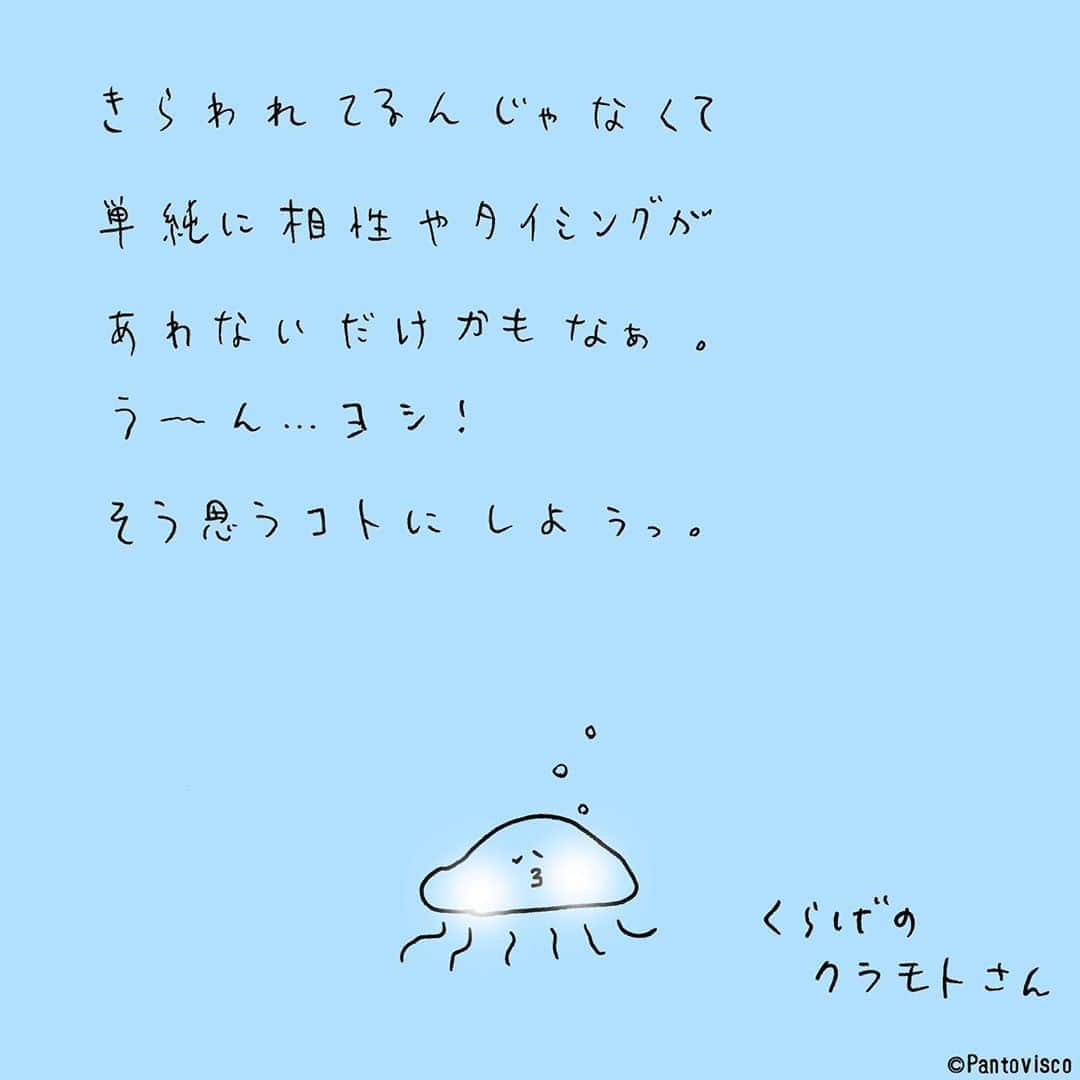 きらわれてるんじゃなくて
単純に相性やタイミングが
あわないだけかもなぁ。
う〜ん…ヨシ!
そう思うコトにしようっ。
くらげの
クラモトさん
©Pantovisco